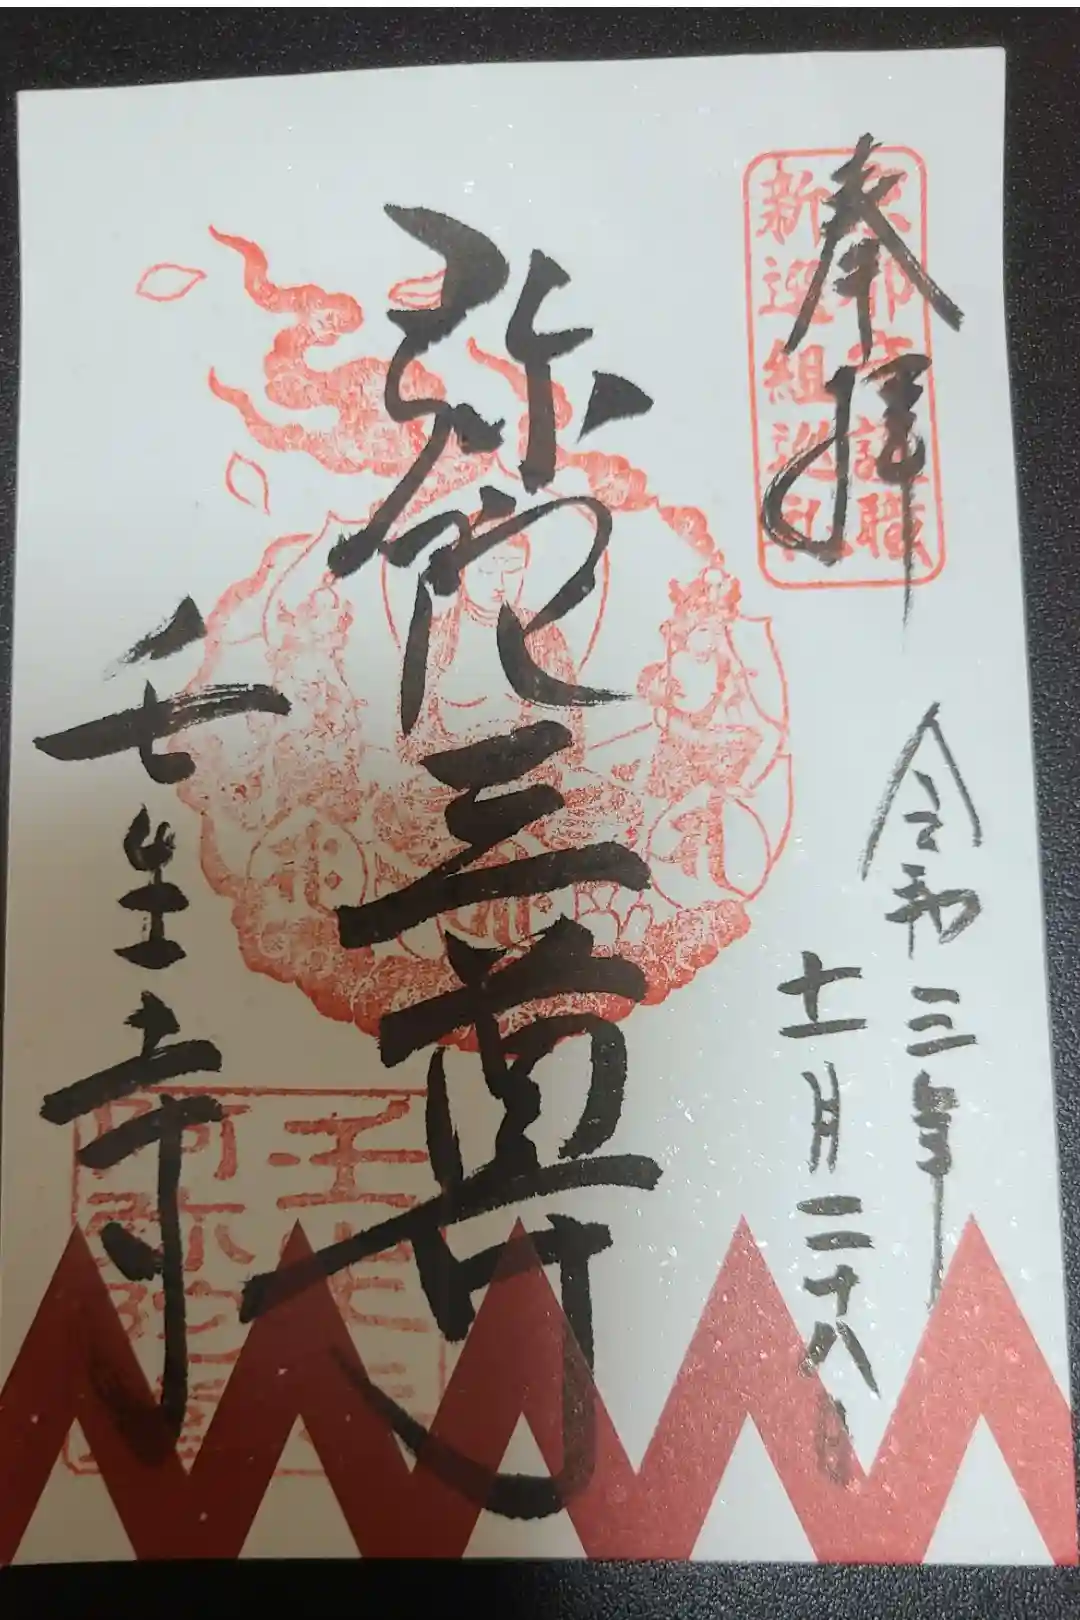 奉拝
京都守護職
新選組巡礼
令和三年
十一月二十八日
弥陀三尊
壬生寺